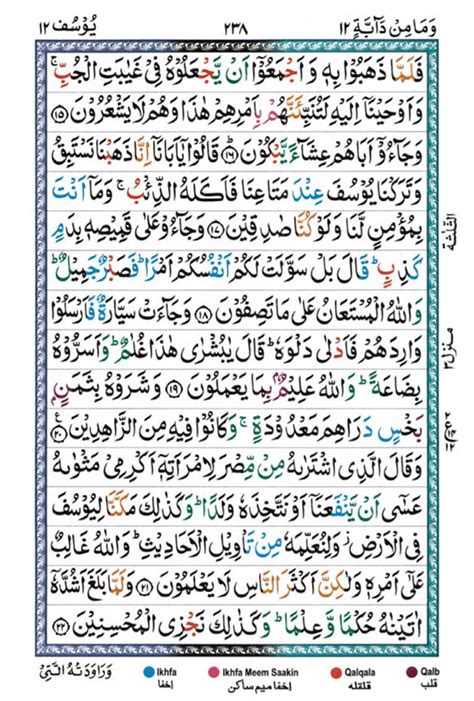 وَمَا مِنْ دَآبَّةٍ ١٢ ٢٣٨ يُوْسُف ١٢
فَلَمَّا ذَهَبُوْا بِهٖ وَاَجْمَعُوْۤا اَنْ يَّجْعَلُوْهُ فِىْ غَيٰبَتِ الْجُبِّ ۚ
وَاَوْحَيْنَاۤ اِلَيْهِ لَتُنَبِّئَنَّهُمْ بِاَمْرِهِمْ هٰذَا وَهُمْ لَا يَشْعُرُوْنَ ﴿۱۵﴾
وَجَآءُوْۤ اَبَاهُمْ عِشَآءً يَّبْكُوْنَ ؕ﴿۱۶﴾ قَالُوْا يٰۤاَبَانَاۤ اِنَّا ذَهَبْنَا نَسْتَبِقُ
وَتَرَكْنَا يُوْسُفَ عِنْدَ مَتَاعِنَا فَاَكَلَهُ الذِّئْبُ ۚ وَمَاۤ اَنْتَ
بِمُؤْمِنٍ لَّنَا وَلَوْ كُنَّا صٰدِقِيْنَ ﴿۱۷﴾ وَجَآءُوْ عَلٰى قَمِيْصِهٖ بِدَمٍ
كَذِبٍ ؕ قَالَ بَلْ سَوَّلَتْ لَكُمْ اَنْفُسُكُمْ اَمْرًا ؕ فَصَبْرٌ جَمِيْلٌ ؕ
وَاللّٰهُ الْمُسْتَعَانُ عَلٰى مَا تَصِفُوْنَ ﴿۱۸﴾ وَجَآءَتْ سَيَّارَةٌ فَاَرْسَلُوْا
وَارِدَهُمْ فَاَدْلٰى دَلْوَهٗ ؕ قَالَ يٰبُشْرٰى هٰذَا غُلٰمٌ ؕ وَاَسَرُّوْهُ
بِضَاعَةً ؕ وَاللّٰهُ عَلِيْمٌۢ بِمَا يَعْمَلُوْنَ ﴿۱۹﴾ وَشَرَوْهُ بِثَمَنٍۢ
بَخْسٍ دَرَاهِمَ مَعْدُوْدَةٍ ۚ وَكَانُوْا فِيْهِ مِنَ الزّٰهِدِيْنَ ﴿۲۰﴾
وَقَالَ الَّذِى اشْتَرٰىهُ مِنْ مِّصْرَ لِامْرَاَتِهٖۤ اَكْرِمِىْ مَثْوٰىهُ
عَسٰۤى اَنْ يَّنْفَعَنَاۤ اَوْ نَتَّخِذَهٗ وَلَدًا ؕ وَكَذٰلِكَ مَكَّنَّا لِيُوْسُفَ
فِى الْاَرْضِ ؗ وَلِنُعَلِّمَهٗ مِنْ تَاْوِيْلِ الْاَحَادِيْثِ ؕ وَاللّٰهُ غَالِبٌ
عَلٰۤى اَمْرِهٖ وَلٰكِنَّ اَكْثَرَ النَّاسِ لَا يَعْلَمُوْنَ ﴿۲۱﴾ وَلَمَّا بَلَغَ اَشُدَّهٗۤ
اٰتَيْنٰهُ حُكْمًا وَّعِلْمًا ؕ وَكَذٰلِكَ نَجْزِى الْمُحْسِنِيْنَ ﴿۲۲﴾
الثلثة
منزل ۳
وَرَاوَدَتْهُ الَّتِىْ
Ikhfa Ikhfa Meem Saakin Qalqala Qalb
اخفا اخفا میم ساکن قلقلہ قلب